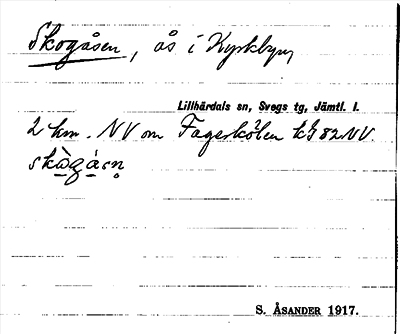 Skogåsen, ås i Kyrkbyn,
Lillhärdals sn, Svegs tg, Jämtl. l.
2 km. NV om Fagerkölen kS 82 NV.
skògåsn̥
S. ÅSANDER 1917.